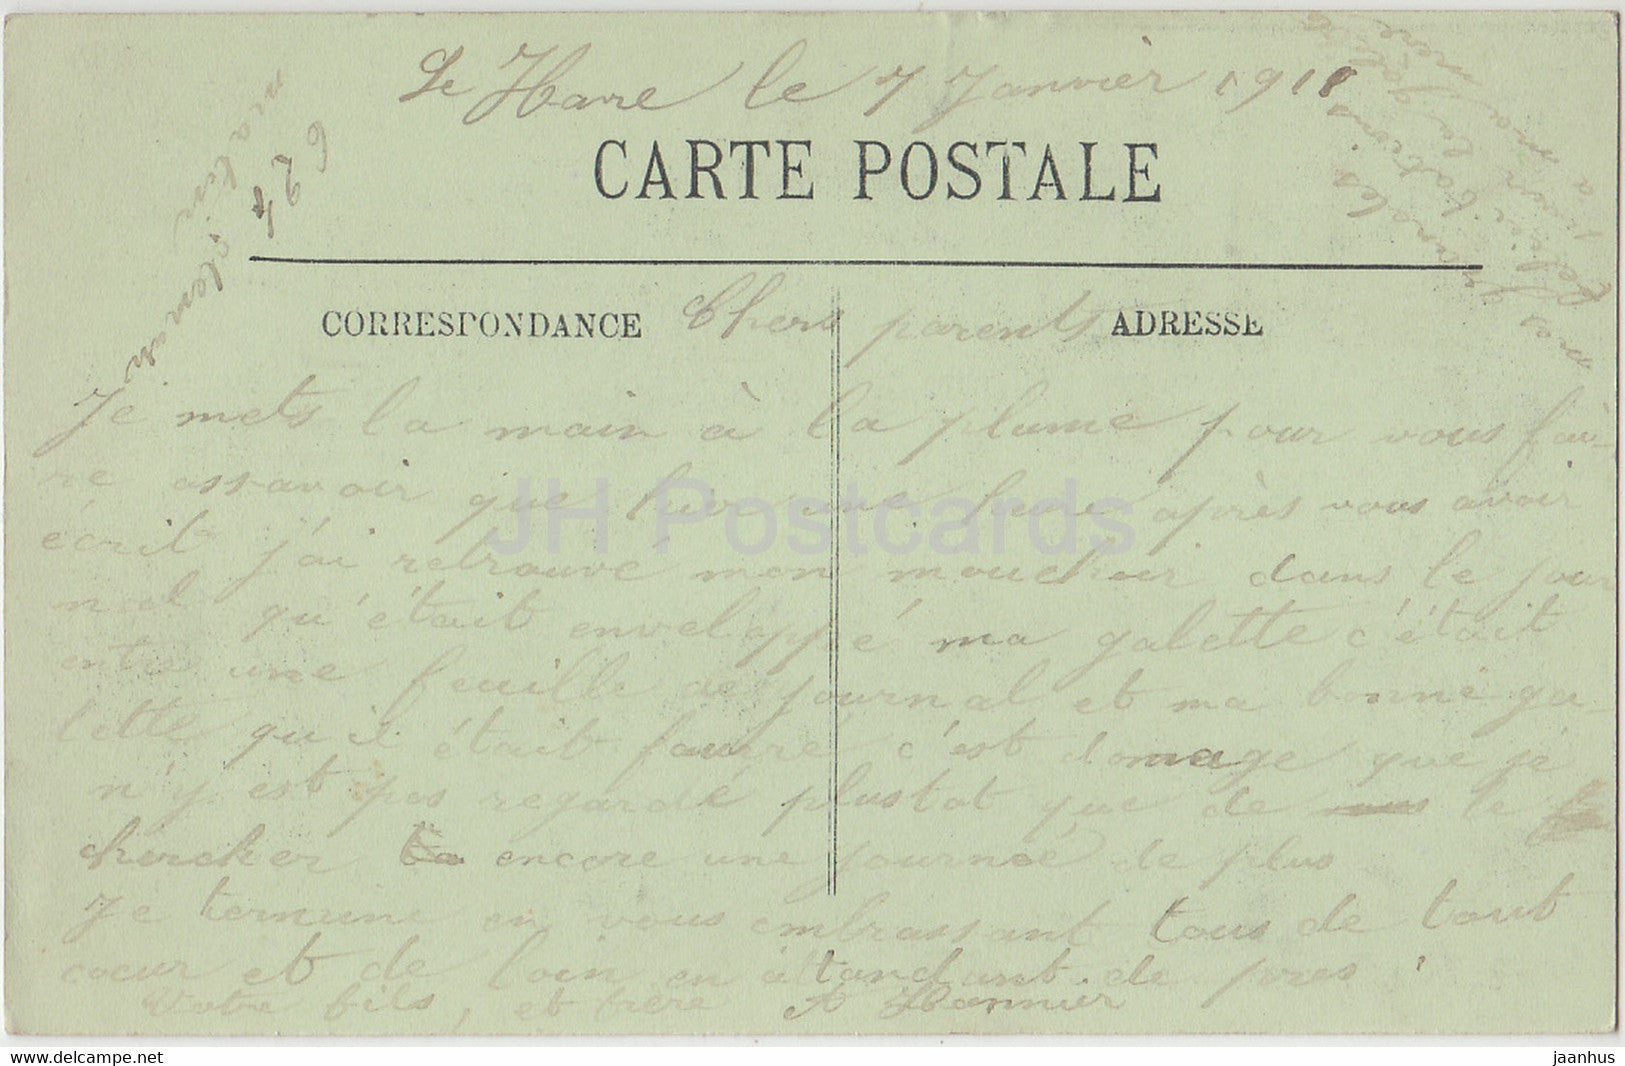 Le Havre le 7 Janvier 1911
CARTE POSTALE
CORRESPONDANCE
ADRESSE
Chers parents
Je mets la main à la plume pour vous fai
re assavoir que hier une heure après vous avoir
écrit j'ai retrouvé mon mouchoir dans le jour
nal qu'était enveloppé ma galette c'était
entre une feuille de journal et ma bonne ga
lette qu'il était fourré c'est domage que je
n'y est pas regardé plustot que de le
chercher encore une journée de plus
Je termine en vous embrassant tous de tout
cœur et de loin en attandant de pres
Votre fils, et frère A Hannier
grandes
mes félicitations
à ma mère
624
JH Postcards
delcampe.net
jaanhus